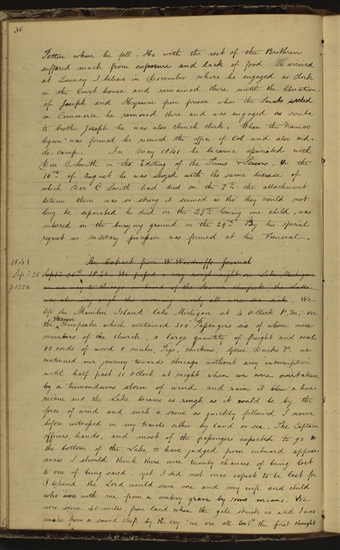 34
Patten when he fell. He with the rest of the Brethren
suffered much from exposure and lack of food. He arrived
at Quincy I believe in December where he engaged as clerk
in the Court house and remained there until the liberation
of Joseph and Hyrum from prison when the Saints settled
in Commerce he removed there and was engaged as scribe
to broth Joseph he was also church clerk. When the Nauvoo
Legion was formed he received the office of Col and also aid-
de-camp. In May 1841 he became associated with
Don C Smith in the Editing of the Times & Seasons. On the
16th of August he was seized with the same disease of
which Don C Smith had died on the 7th the attachment
between them was so strong it seemed as tho' they could not
long be separated he died on the 27th leaving one child, was
interred on the burying ground on the 29th By his special
request no military was formed at his Funeral.
1843 An Extract from W Woodruff's Journal
Sep. 25
p 1226
left the Manitou Island lake Michigan at 4 o'clock P.M. on
the Chesapeake which contained 300 Passengers 100 of whom were
members of the church, a large quantity of freight and coal
80 cords of wood 2 mules, Pigs, chickens, Geese Ducks &c we
continued our journey towards chicago without any interruption
until half past 11 o'clock at night when we were overtaken
by a tremendous storm of wind and rain it blew a hurri
cane and the Lake became as rough as it could be by the
force of wind and such a scene as quickly followed I never
before witnessed in my travels either by land or sea. The Captain
officers hands, and most of the passengers expected to go to
the bottom of the Lake to have judged from outward appear
ances I should think there were twenty chances of being lost
to one of being saved, yet I did not once expect to be lost for
I believed the Lord would save me and my wife and child
who were with me from a watery grave by some means. We
were some 40 miles from land when the gale struck us and I was
awoke from a sound sleep by the cry "we are all lost" the first thought